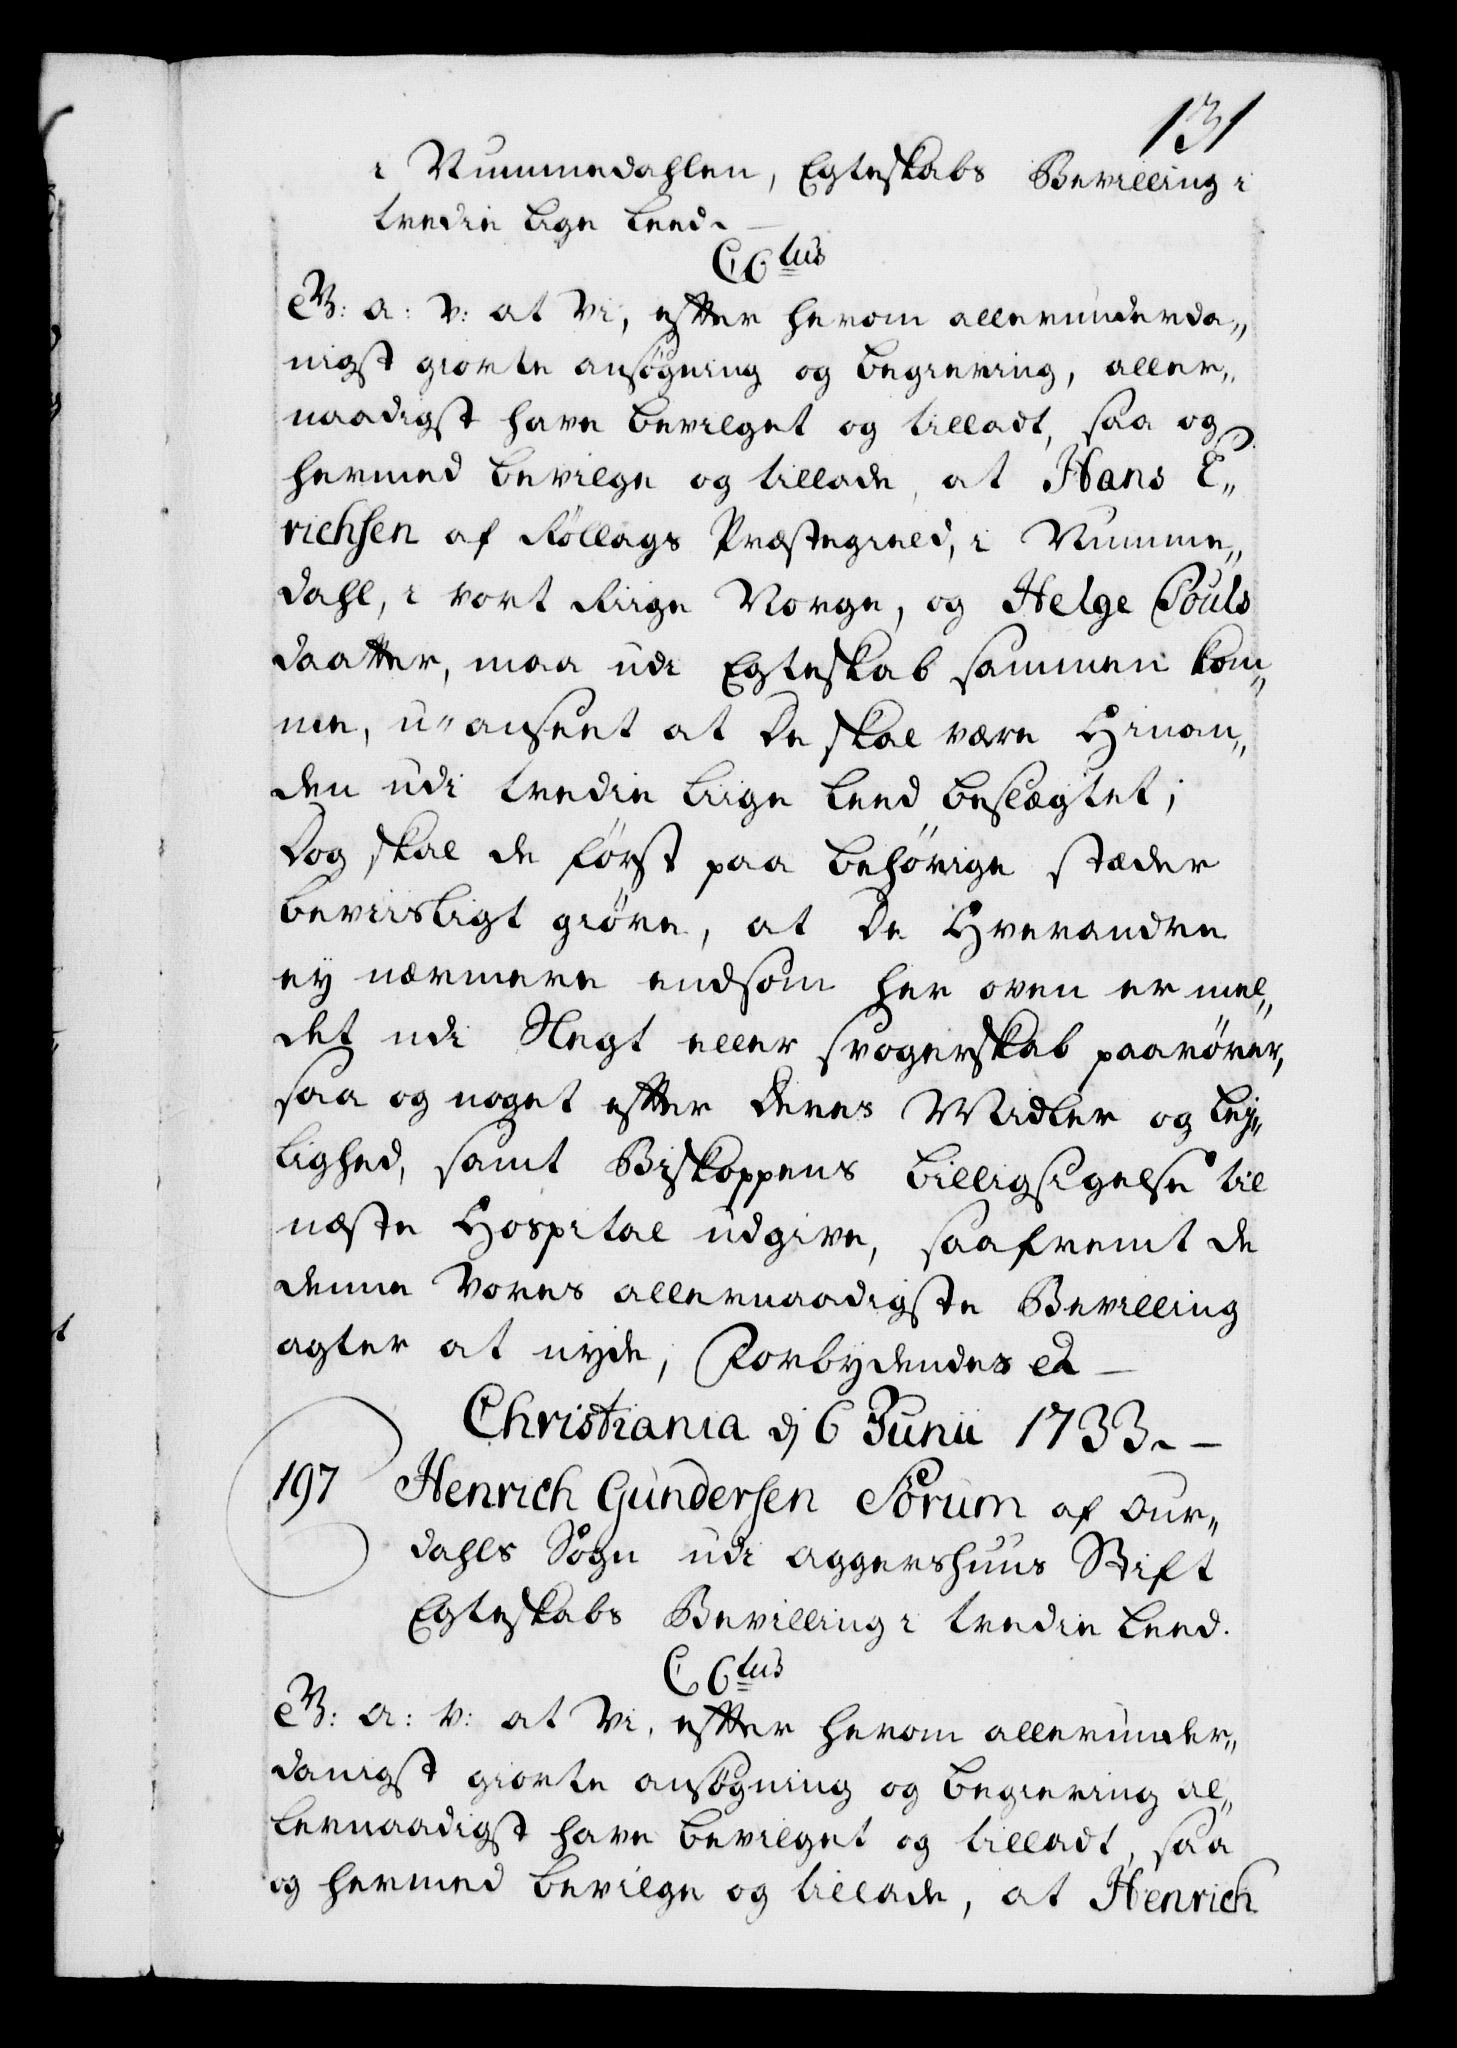 131
i Nummedahlen, Egteskabs Bevilling i
tredie lige Leed.
C 6tus
G: a: V: at Vi, efter herom allerunderda„
nigst giorte ansøgning og begiering, aller„
naadigst have bevilget og tilladt, saa og
hermed bevilge og tillade, at Hans E„
richsen af Röllags Præstegield, i Numme„
dahl, i vort Riige Norge, og Helge Pouls
daatter, maa udi Egteskab sammen kom„
me, u-anseet at De skal være Hinan„
den udi tredie liige Leed beslægtet;
Dog skal de först paa behörige stæder
beviisligt giöre, at De Hverandre
ey nærmere end som her oven er mel„
det udi Slegt eller svogerskab paarörer,
saa og noget efter deres Midler og ley„
lighed, samt Biskoppens billigsigelse til
næste Hospital udgive, saafremt de
denne Vores allernaadigste Bevilling
agter at nyde, Forbydendes et
Christiania dj 6 Junii 1733.
197 Henrich Gundersen Sörum af Our„
dahls Sogn udi Aggershuus Stift
Egteskabs Bevilling i tredie Leed.
C 6tus
G: a: V: at Vi, efter herom allerunder„
danigst giorte ansøgning og begiering al„
lernaadigst have bevilget og tilladt, saa
og hermed bevilge og tillade, at Henrich